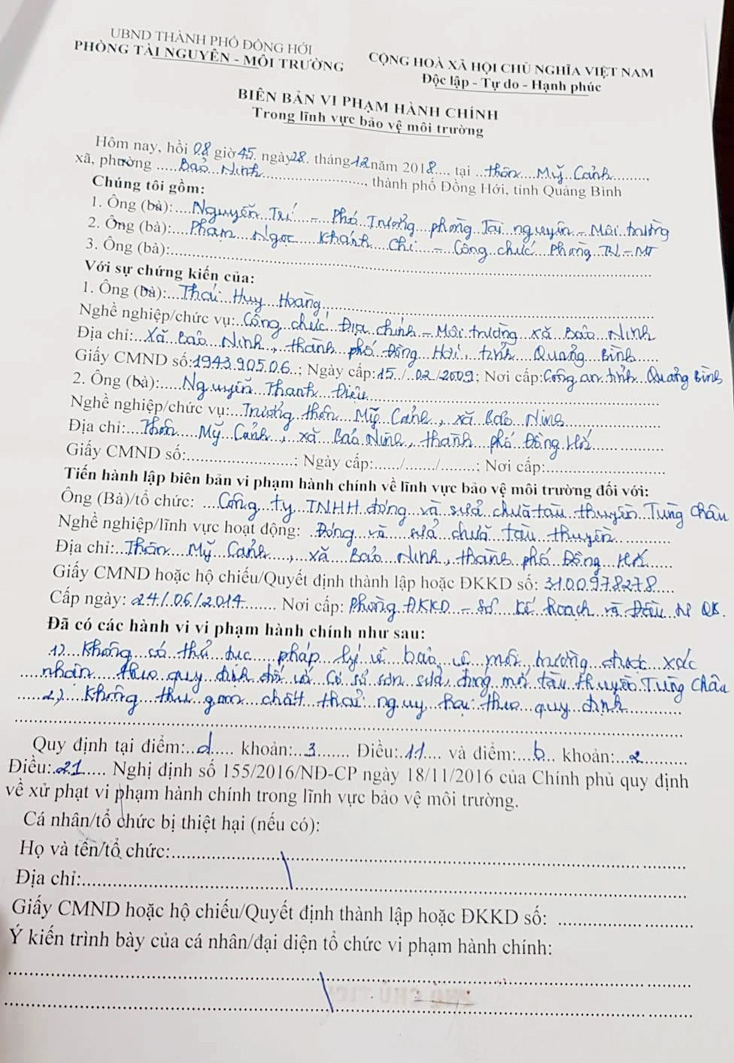 UBND THÀNH PHỐ ĐỒNG HỚI
PHÒNG TÀI NGUYÊN - MÔI TRƯỜNG
CỘNG HOÀ XÃ HỘI CHỦ NGHĨA VIỆT NAM
Độc lập - Tự do - Hạnh phúc
BIÊN BẢN VI PHẠM HÀNH CHÍNH
Trong lĩnh vực bảo vệ môi trường
Hôm nay, hồi 08 giờ 45, ngày 28. tháng 12 năm 2018..., tại ..thôn Mỹ Cảnh
xã, phường ....Bảo Ninh..., thành phố Đồng Hới, tỉnh Quảng Bình
Chúng tôi gồm:
1. Ông (bà):...Nguyễn Trí - Phó Trưởng phòng Tài nguyên - Môi trường
2. Ông (bà):...Phạm Ngọc Khánh Chi - Công chức Phòng TN-MT
3. Ông (bà):
Với sự chứng kiến của:
1. Ông (bà):...Thái Huy Hoàng
Nghề nghiệp/chức vụ:.Công chức Địa chính - Môi trường xã Bảo Ninh
Địa chỉ:...Xã Bảo Ninh, thành phố Đồng Hới, tỉnh Quảng Bình
Giấy CMND số:194390506..; Ngày cấp:15./.02/2009; Nơi cấp:Công an tỉnh Quảng Bình
2. Ông (bà):...Nguyễn Thanh Điều
Nghề nghiệp/chức vụ:..Trưởng thôn Mỹ Cảnh, xã Bảo Ninh
Địa chỉ:...Thôn Mỹ Cảnh, xã Bảo Ninh, thành phố Đồng Hới
Giấy CMND số:....................; Ngày cấp:....../....../.......; Nơi cấp:....................
Tiến hành lập biên bản vi phạm hành chính về lĩnh vực bảo vệ môi trường đối với:
Ông (Bà)/tổ chức: ...Công ty TNHH đóng và sửa chữa tàu thuyền Tùng Châu
Nghề nghiệp/lĩnh vực hoạt động: Đóng và sửa chữa tàu thuyền
Địa chỉ:..Thôn Mỹ Cảnh, xã Bảo Ninh, thành phố Đồng Hới
Giấy CMND hoặc hộ chiếu/Quyết định thành lập hoặc ĐKKD số: 3100978278
Cấp ngày: 24/06/2014........ Nơi cấp: Phòng ĐKKD - Sở Kế hoạch và Đầu tư QB.
Đã có các hành vi vi phạm hành chính như sau:
1) Không có thủ tục pháp lý về bảo vệ môi trường được xác
nhận theo quy định đối với cơ sở sơn sửa, đóng mới tàu thuyền Tùng Châu
2) Không thu gom chất thải nguy hại theo quy định
Quy định tại điểm:..d..... khoản:..3....... Điều:.11.... và điểm:...b... khoản:...2..........
Điều:.21..... Nghị định số 155/2016/NĐ-CP ngày 18/11/2016 của Chính phủ quy định
về xử phạt vi phạm hành chính trong lĩnh vực bảo vệ môi trường.
Cá nhân/tổ chức bị thiệt hại (nếu có):
Họ và tên/tổ chức:
Địa chỉ:
Giấy CMND hoặc hộ chiếu/Quyết định thành lập hoặc ĐKKD số: ....................
Ý kiến trình bày của cá nhân/đại diện tổ chức vi phạm hành chính: